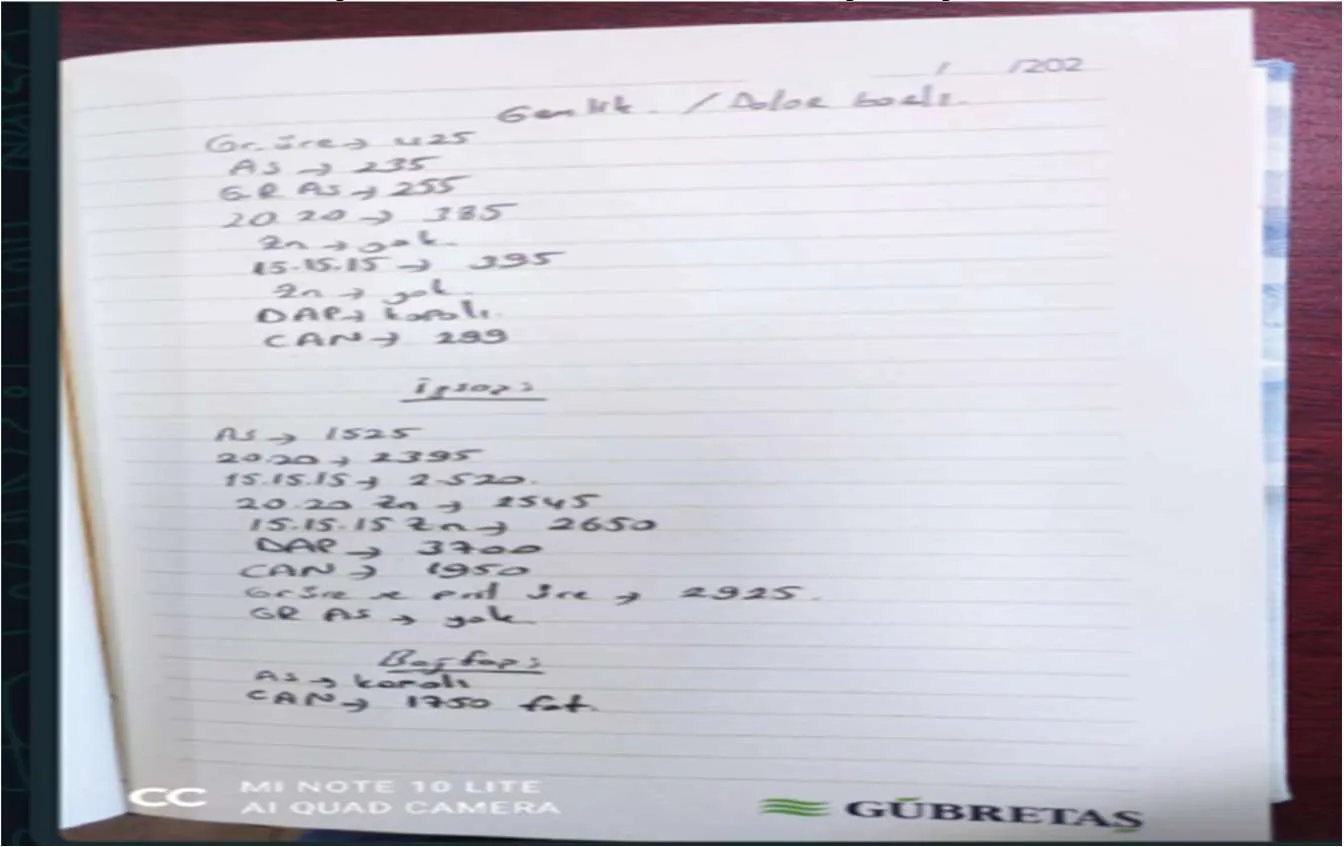 / /202
Gemlik. / Dolar bazlı.
Gr. üre → 425
AS → 235
GR AS → 255
20.20 → 385
Zn → yok.
15.15.15 → 395
Zn → yok.
DAP → kapalı.
CAN → 299
İgsaş:
AS → 1525
20.20 → 2395
15.15.15 → 2520.
20.20 Zn → 2545
15.15.15 Zn → 2650
DAP → 3700
CAN → 1950
Gr üre ve pril üre → 2925.
GR AS → yok
Bagfaş:
AS → kapalı
CAN → 1750 fat.
CC MI NOTE 10 LITE
AI QUAD CAMERA
GÜBRETAŞ